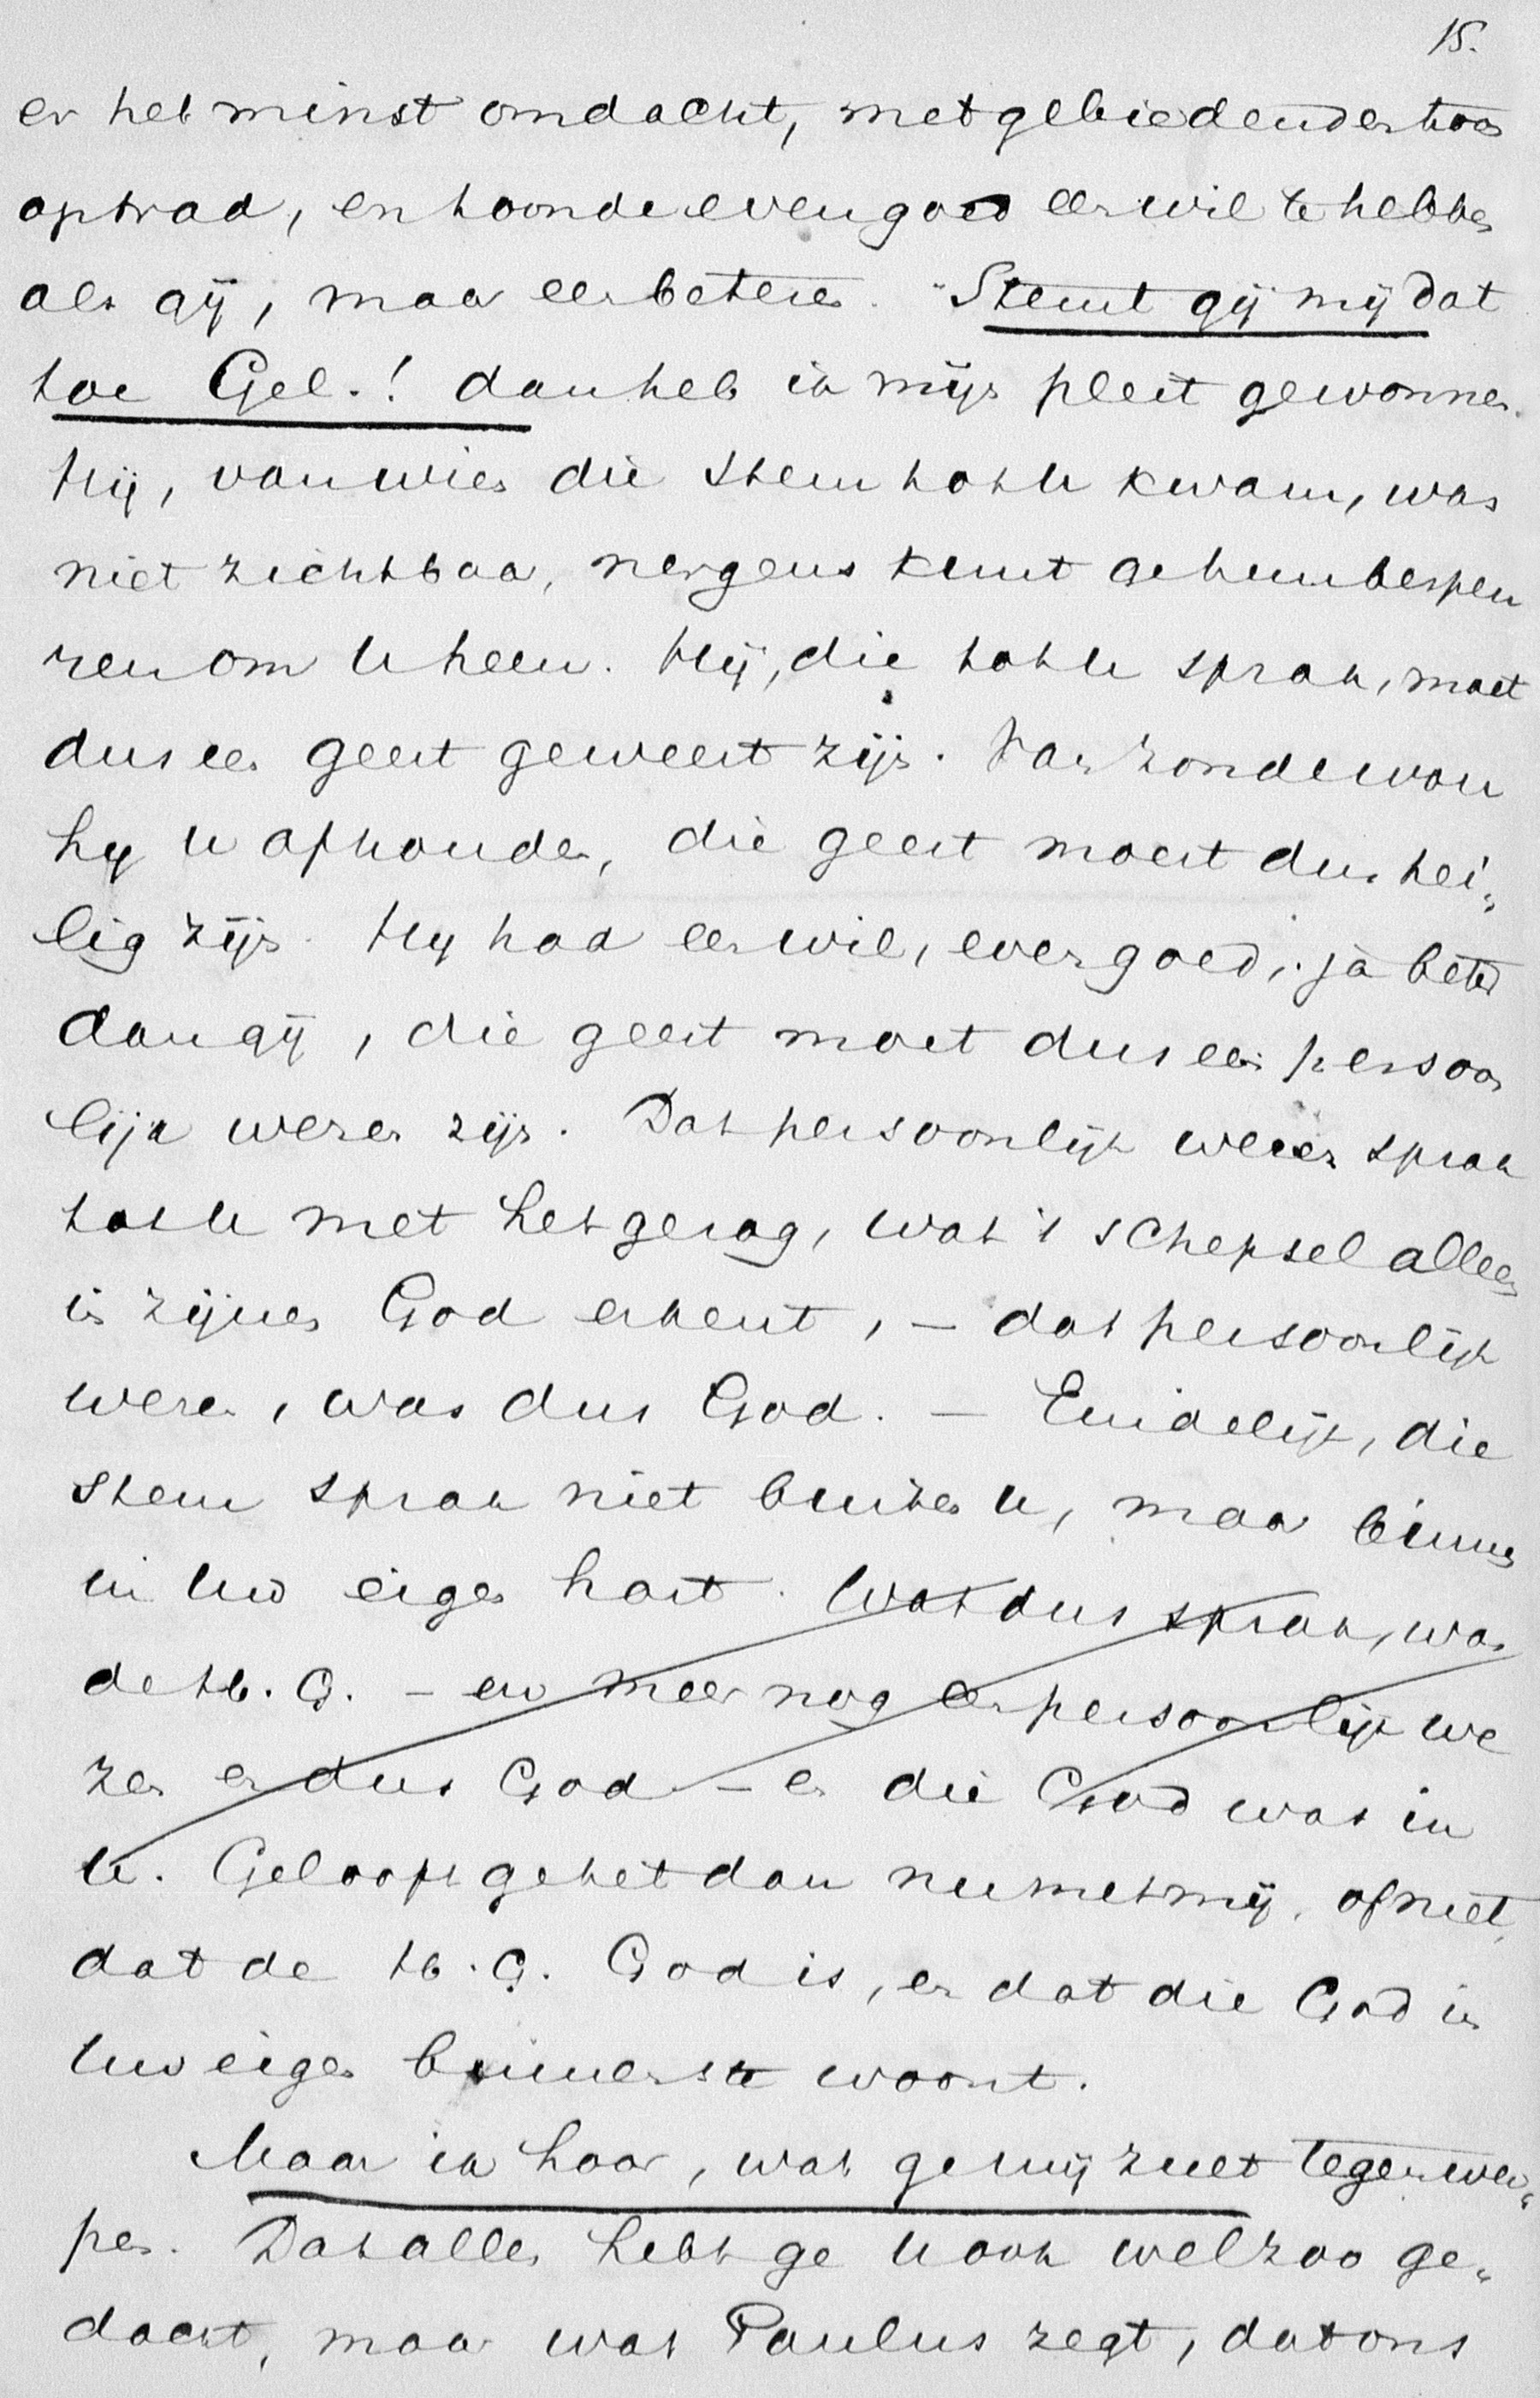 15.
er het minst om dacht, met gebiedenden toon
optrad, en toonde even goed een wil te hebben
als gij, maar een beteren. Stemt gij mij dat
toe Gel.! dan heb ik mijn pleit gewonnen.
Hij, van wien die stem tot U kwam, was
niet zichtbaar, nergens kunt ge hem bespeu
ren om U heen. Hij, die tot U sprak, moet
dus een geest geweest zijn. Van zonde wou
hij U afhouden, die geest moest dus hei„
lig zijn. Hij had een wil, even goed, ja beter
dan gij, die geest moet dus een persoon
lijk wezen zijn. Dat persoonlijk wezen sprak
tot U met het gezag, wat 't schepsel alleen
in zijnen God erkent, – dat persoonlijk
wezen, was dus God. – Eindelijk, die
stem sprak niet buiten U, maar binnen
in Uw eigen hart. Wat dus sprak, was
de H. G. – en meer nog een persoonlijk we
zen en dus God – en die God was in
U. Gelooft ge het dan nu met mij, of niet,
dat de H. G. God is, en dat die God in
Uw eigen binnenste woont.
Maar ik hoor, wat ge mij zult tegenwer„
pen. Dat alles hebt ge U ook wel zoo ge„
dacht, maar wat Paulus zegt, dat ons